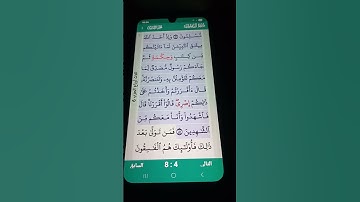 مُّسْلِمُونَ ۞ وَإِذْ أَخَذَ ٱللَّهُ
مِيثَـٰقَ ٱلنَّبِيِّـۧنَ لَمَآ ءَاتَيْتُكُم
مِّن كِتَـٰبٍ وَحِكْمَةٍ ثُمَّ
جَآءَكُمْ رَسُولٌ مُّصَدِّقٌ لِّمَا
مَعَكُمْ لَتُؤْمِنُنَّ بِهِۦ وَلَتَنصُرُنَّهُۥ
قَالَ ءَأَقْرَرْتُمْ وَأَخَذْتُمْ عَلَىٰ
ذَٰلِكُمْ إِصْرِى قَالُوٓا۟ أَقْرَرْنَا قَالَ
فَٱشْهَدُوا۟ وَأَنَا۠ مَعَكُم مِّنَ
ٱلشَّـٰهِدِينَ ۞ فَمَن تَوَلَّىٰ بَعْدَ
ذَٰلِكَ فَأُو۟لَـٰٓئِكَ هُمُ ٱلْفَـٰسِقُونَ
التالى 8 : 4 السابق